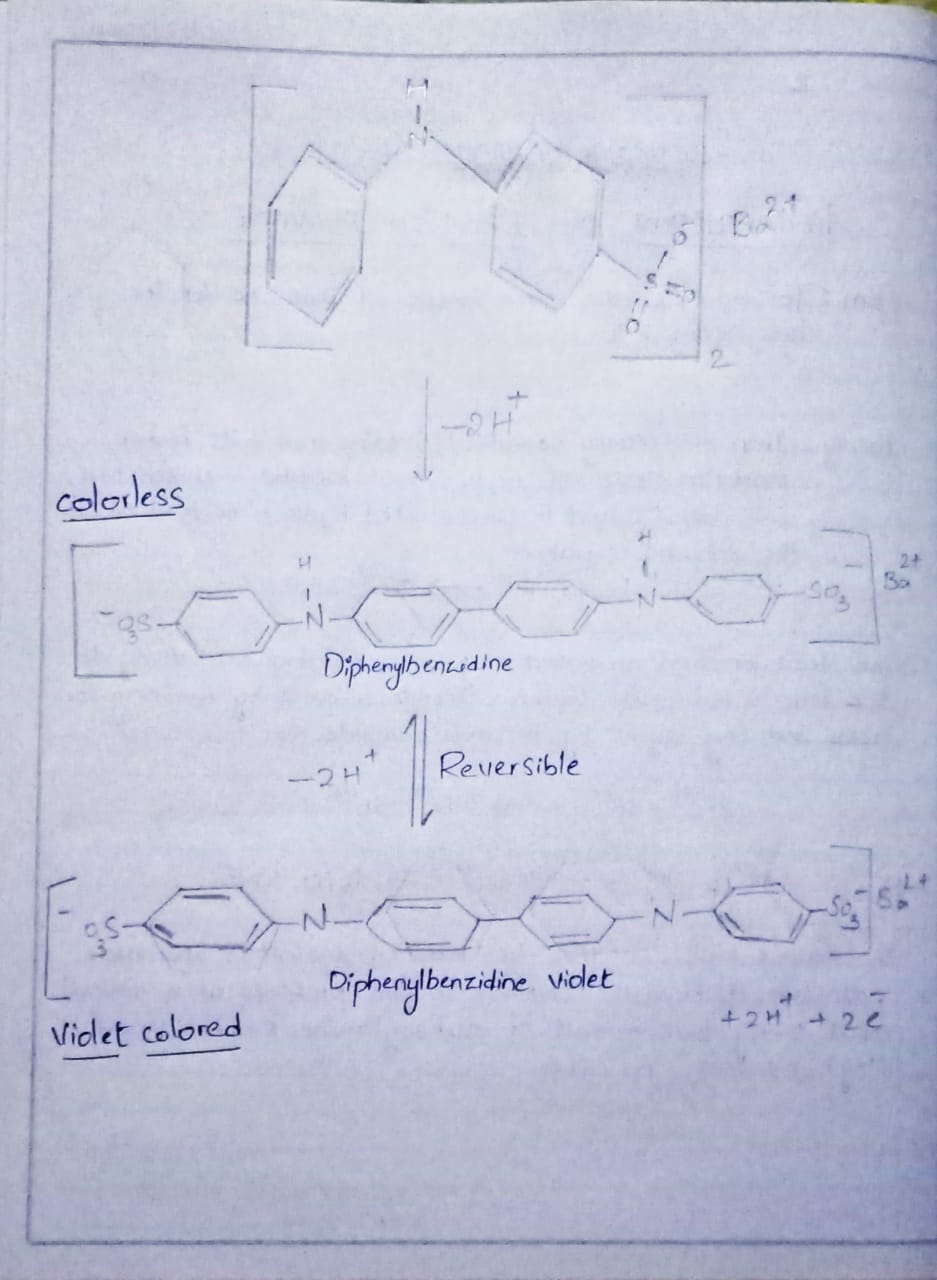 H
N
O⁻ Ba²⁺
S =O
O
2
−2H⁺
colorless
H H
⁻O₃S N N SO₃⁻ Ba²⁺
Diphenylbenzidine
−2H⁺ Reversible
⁻O₃S N N SO₃⁻ Ba²⁺
Diphenylbenzidine violet
+2H⁺ + 2e⁻
Violet colored